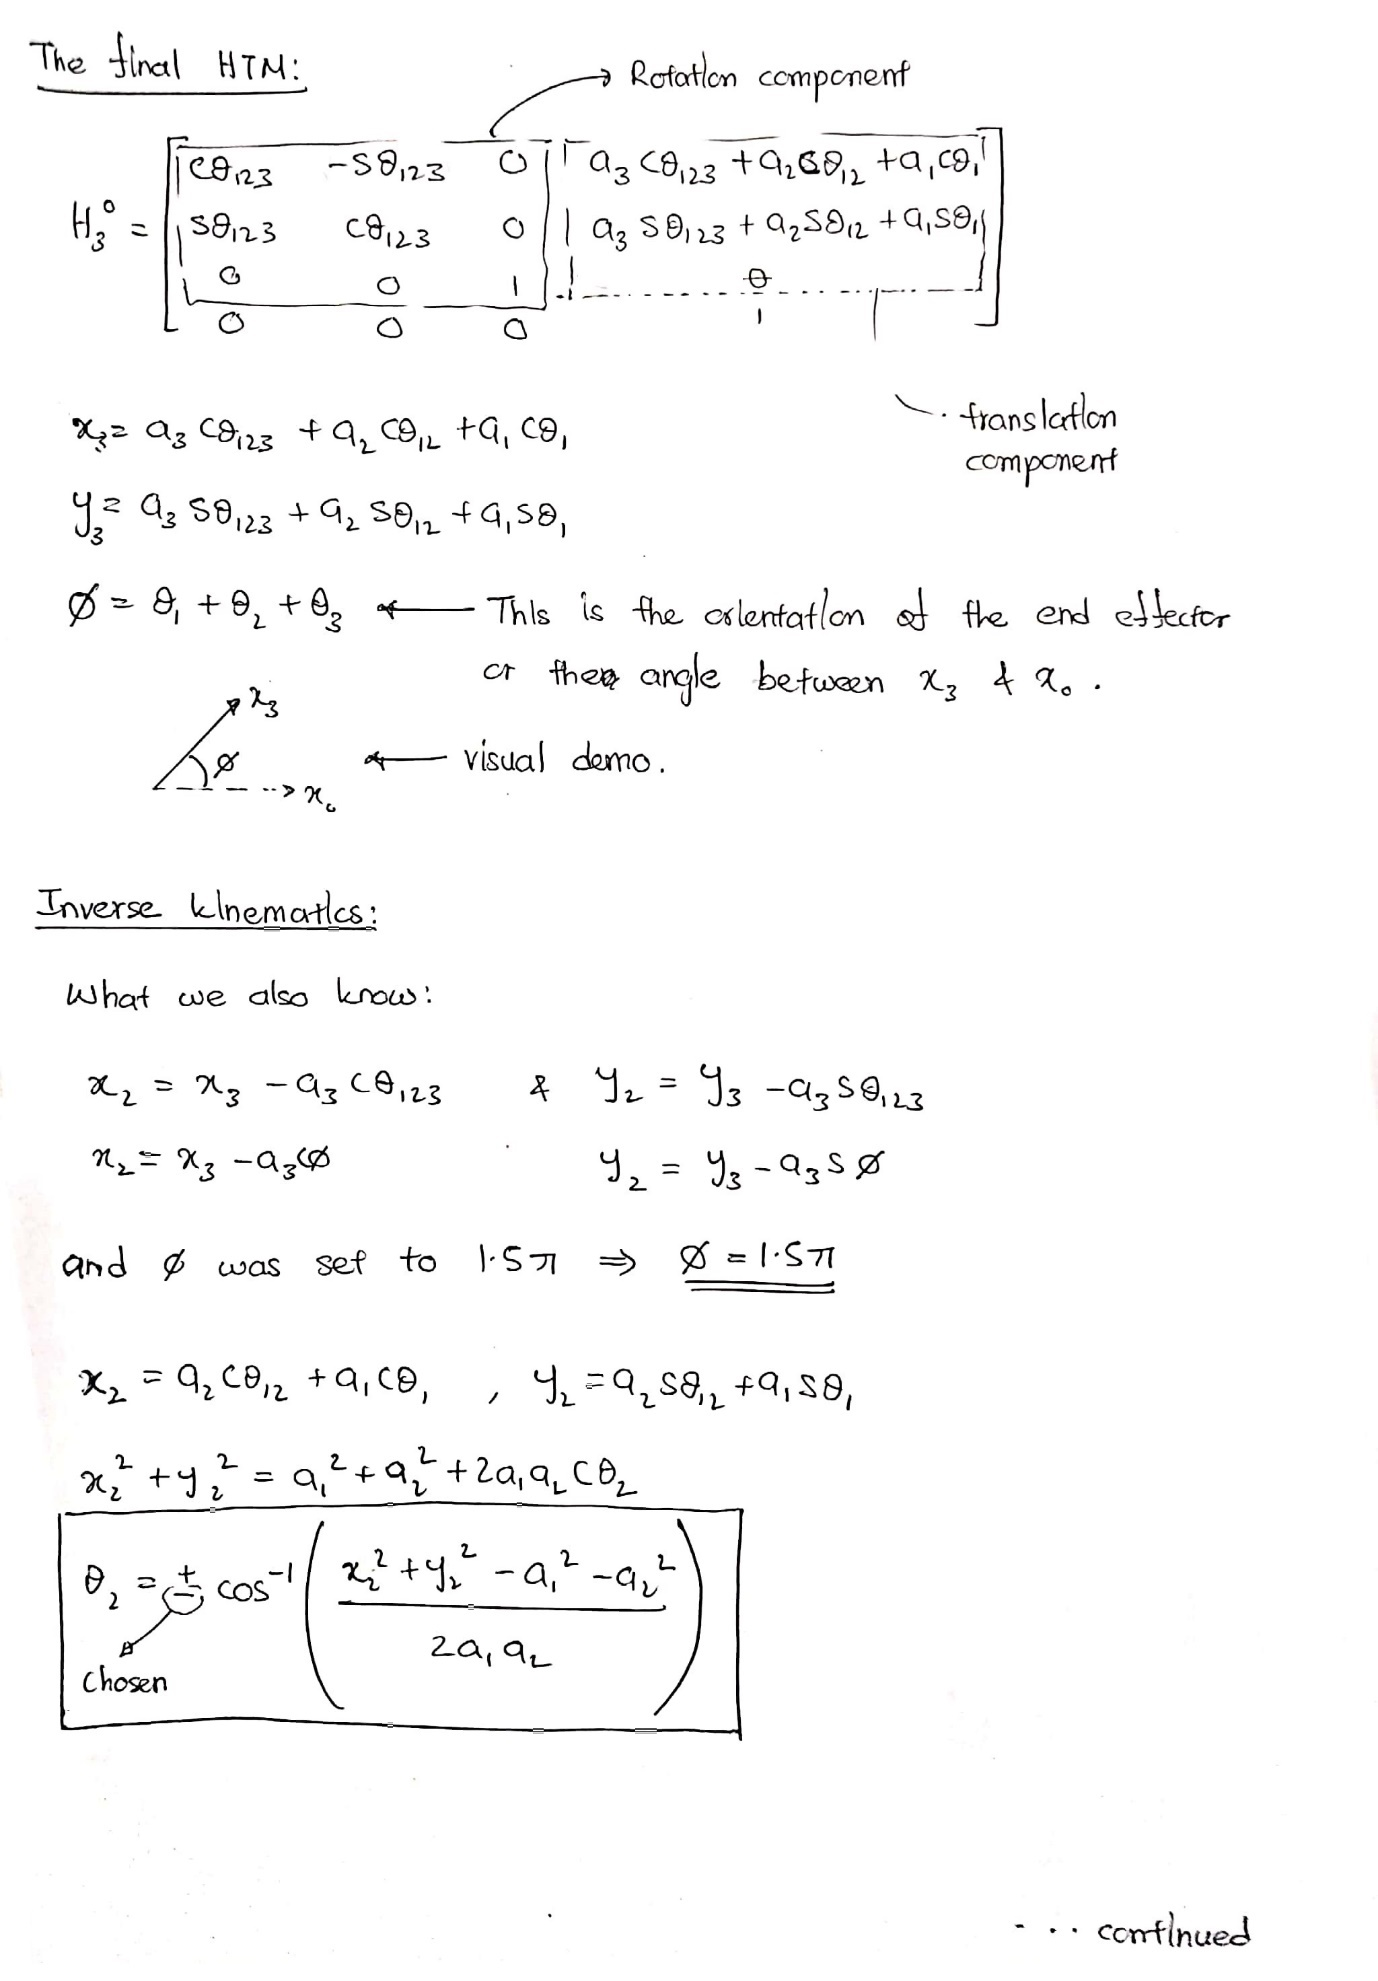 The final HTM:
→ Rotation component
H₃⁰ = [ cθ₁₂₃ -sθ₁₂₃ 0 a₃cθ₁₂₃ + a₂cθ₁₂ + a₁cθ₁
sθ₁₂₃ cθ₁₂₃ 0 a₃sθ₁₂₃ + a₂sθ₁₂ + a₁sθ₁
0 0 1 0
0 0 0 1 ]
translation
component
x₃ = a₃cθ₁₂₃ + a₂cθ₁₂ + a₁cθ₁
y₃ = a₃sθ₁₂₃ + a₂sθ₁₂ + a₁sθ₁
ø = θ₁ + θ₂ + θ₃ ← This is the orientation of the end effector
or the angle between x₃ & x₀.
x₃
ø
x₀
← visual demo.
Inverse kinematics:
What we also know:
x₂ = x₃ - a₃cθ₁₂₃ & y₂ = y₃ - a₃sθ₁₂₃
x₂ = x₃ - a₃cø y₂ = y₃ - a₃sø
and ø was set to 1.5π ⇒ ø = 1.5π
x₂ = a₂cθ₁₂ + a₁cθ₁ , y₂ = a₂sθ₁₂ + a₁sθ₁
x₂² + y₂² = a₁² + a₂² + 2a₁a₂cθ₂
θ₂ = ± cos⁻¹ ( (x₂² + y₂² - a₁² - a₂²) / 2a₁a₂ )
Chosen
... continued